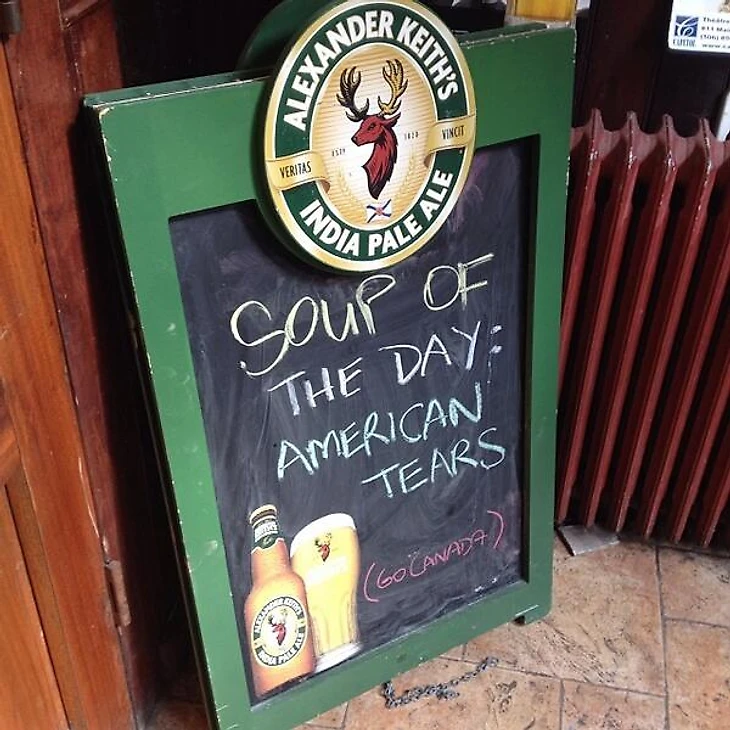 ALEXANDER KEITH'S
VERITAS
VINCIT
ESTD 1820
INDIA PALE ALE
SOUP OF
THE DAY:
AMERICAN
TEARS
(GO CANADA)
ALEXANDER KEITH'S
INDIA PALE ALE
CAPITOL